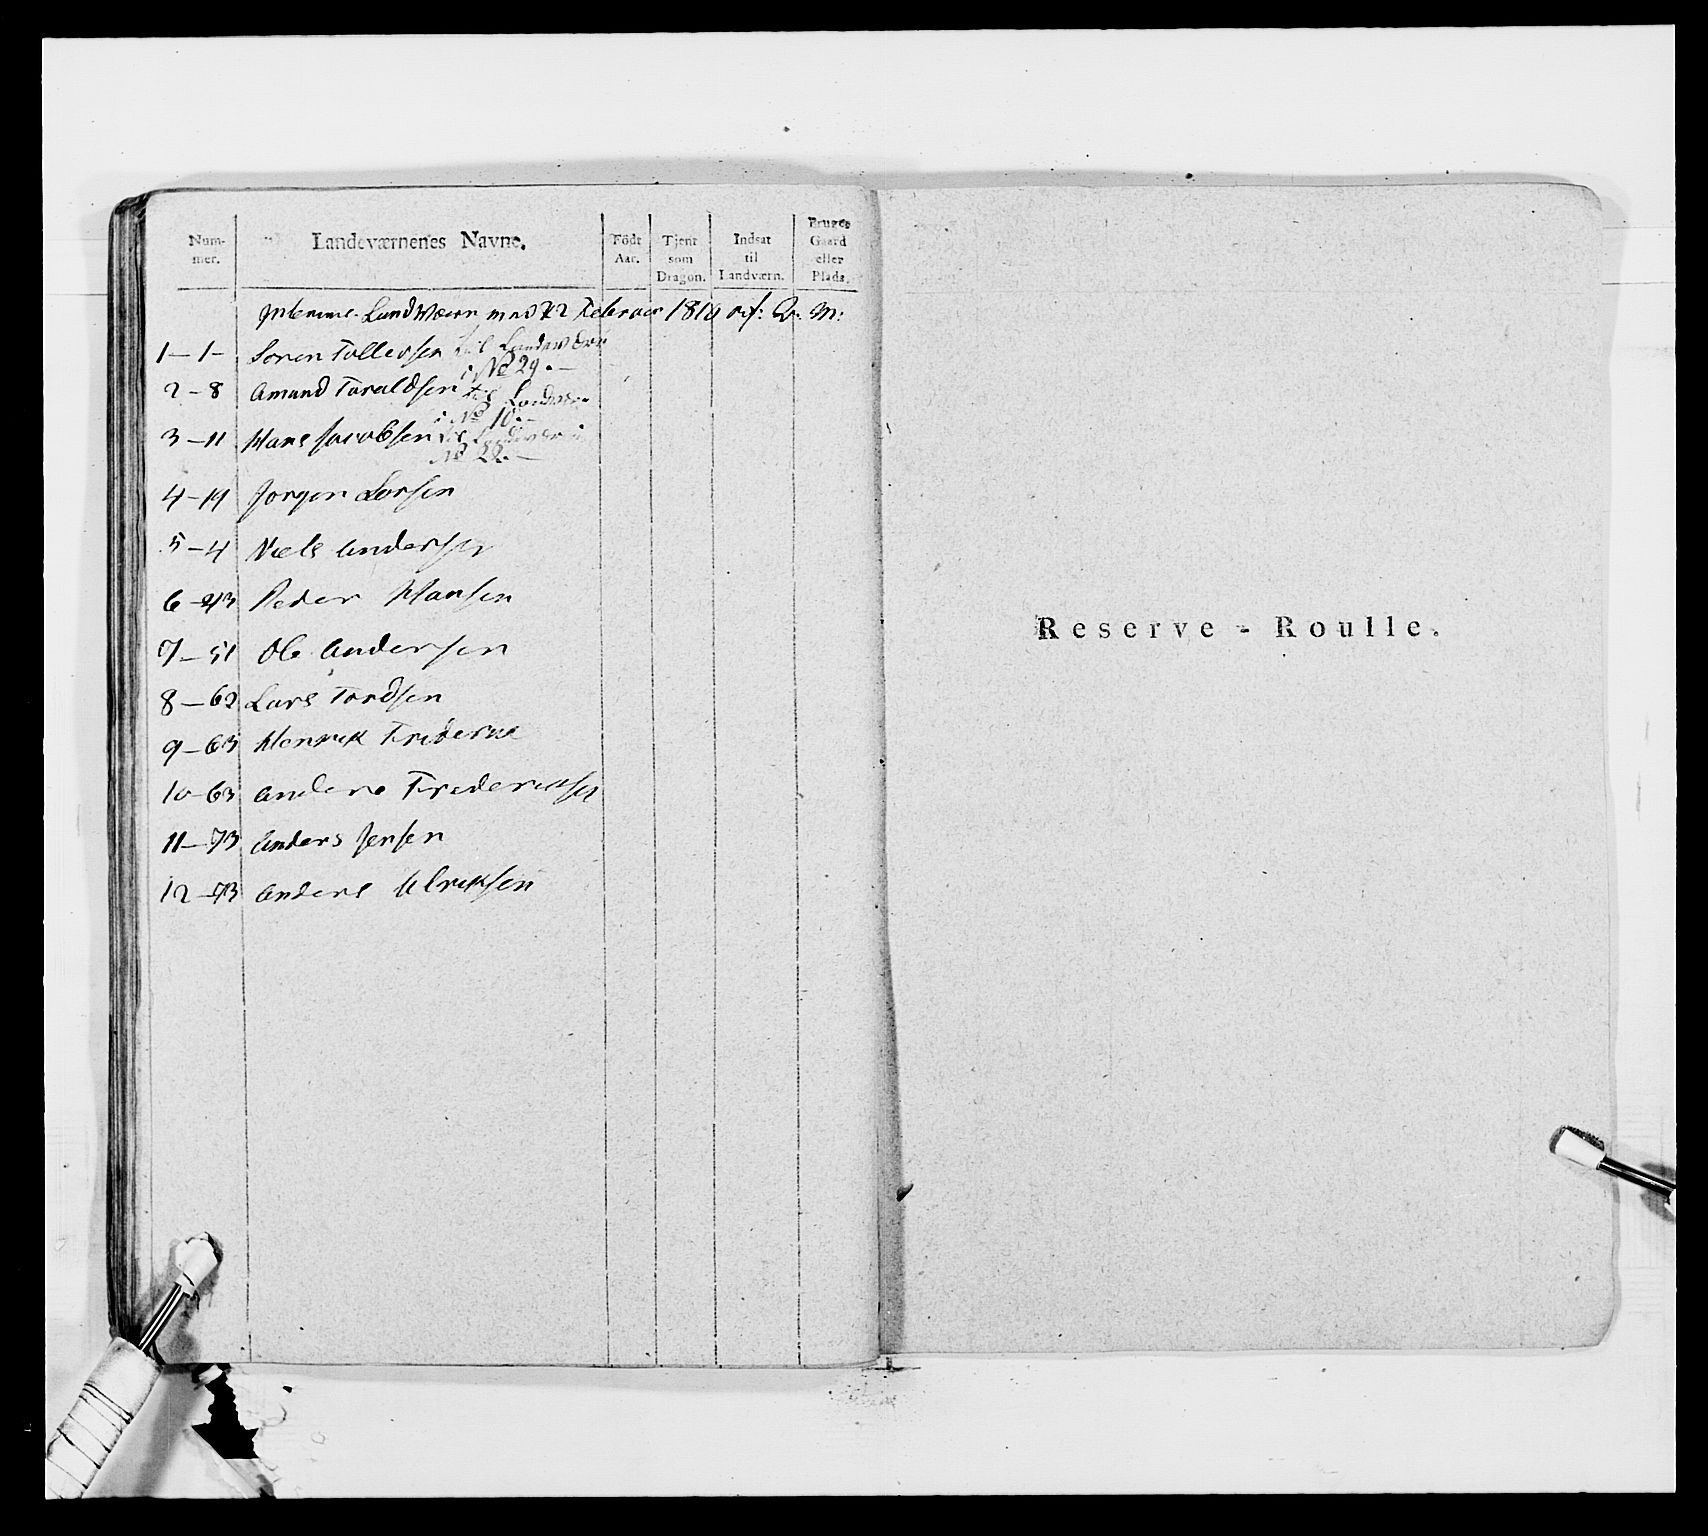 Num-
mer.
Landeværnenes Navne.
Födt
Aar.
Tjent
som
Dragon.
Indsat
til
Landværn.
Bruger
Gaard
eller
Plads.
Landwærn 22 Februar 1810
1 - 1 - Soren Tollersen til Landeværn
i No 29. -
2 - 8 Amund Taraldsen til Landværn
i No 10. -
3 - 11 Hans Jacobsen til Landeværn i
No 22. -
4 - 19 Jorgen Larsen
5 - 4 Niels Andersen
6 - 43 Peder Hansen
7 - 51 Ole Andersen
8 - 62 Lars Tordsen
9 - 63 Henrik
10 - 63 Anders Frederiksen
11 - 73 Anders Jensen
12 - 73 Anders Ulriksen
Reserve - Roulle.